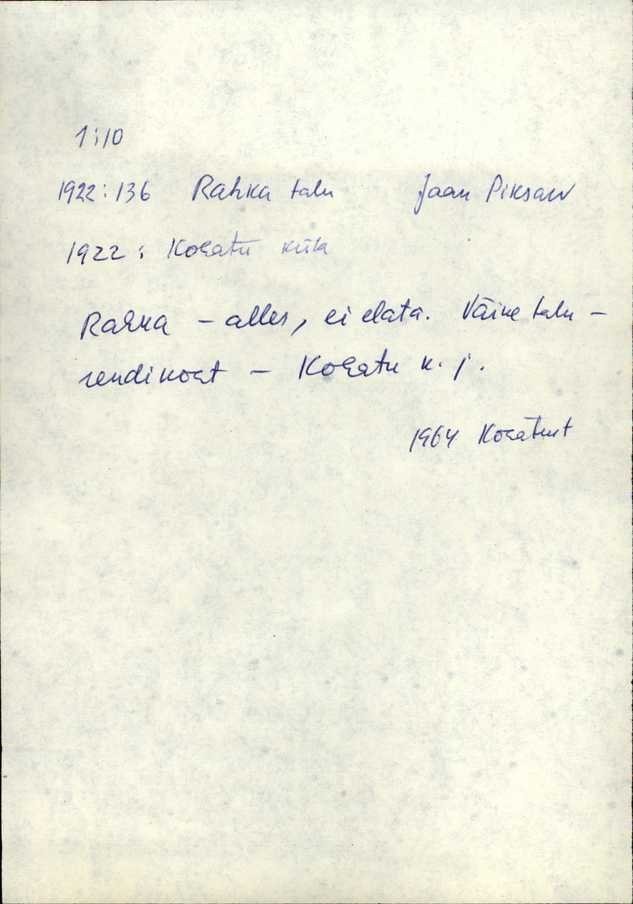 1:10
1922:136 Rahka talu Jaan Piksarv
1922: Kogatu küla
Rahka – alles, ei elata. Väike talu –
rendikoht – Kogatu k. j.
1964 Kogatust